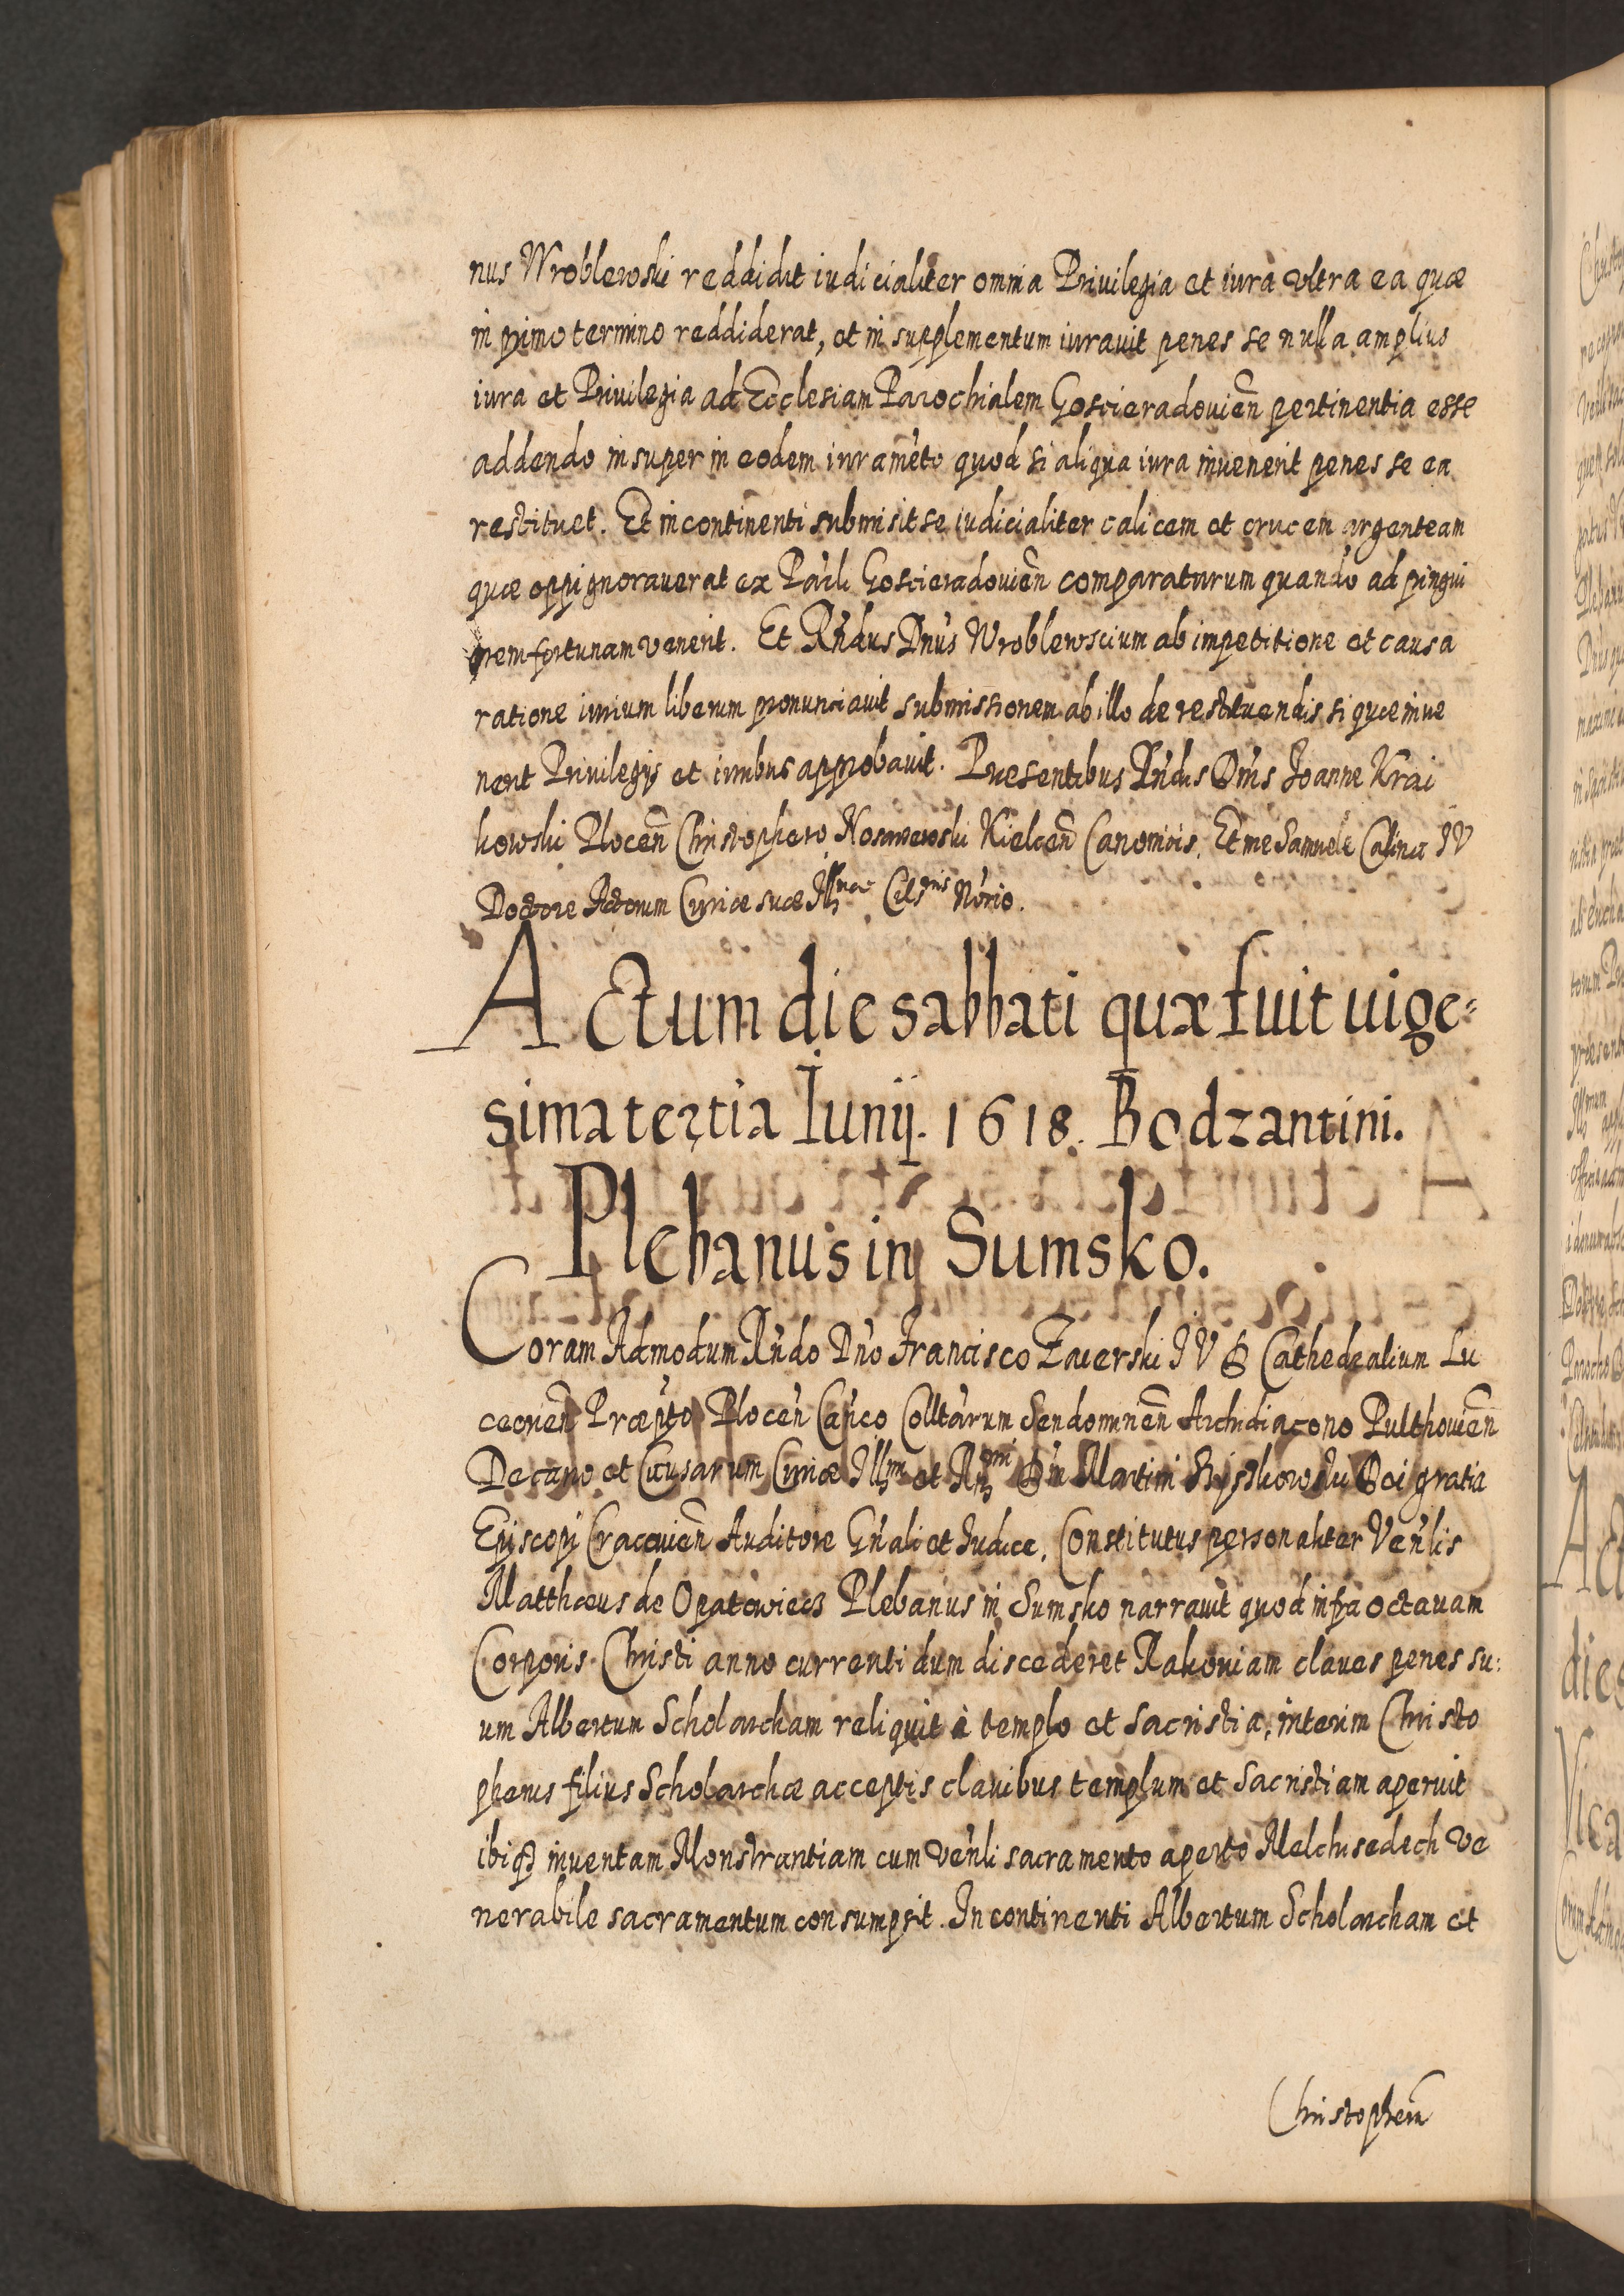 nus Wroblewski reddidit iudicialiter omnia Privilegia et iura vltra ea quæ
in primo termino reddiderat, et in supplementum iurauit penes se nulla amplius
iura et Privilegia ad Ecclesiam Parochialem Goscieradouien̄ pertinentia esse
addendo insuper in eodem iuram̄eto quod si aliqua iura inuenerit penes se ea
restituet. Et incontinenti submisit se iudicialiter calicem et crucem argenteam
quæ oppignorauerat ex Paŕli Gościeradouien̄ comparaturum quando ad pingui
orem fortunam venerit. Et Rńdus Dńus Wroblewscium ab impetitione et causa
ratione iurium liberum pronunciauit submissionem ab illo de restituendis si quæ inue
nerit Privilegijs et iuribus approbauit. Præsentibus Rńdis Dńis Joanne Krai
kowski Plocen̄ Christophero Kielcen̄ Canonicis. Et me Samuele Casina IV
Doctore Actorum Curiæ suæ Illmæ Celsnis Nrio.
Actum die sabbati quæ fuit uige=
sima tertia Iunij. 1618. Bodzantini.
Plebanus in Sumsko.
Coram Admodum Rńdo Dńo Francisco Zaierski IV D Cathedralium Lu
ceorien̄ Præpto Plocen̄ Cańco Colltárum Sendomirien̄ Archidiacono Pulthouien̄
Decano et Causarum Curiæ Illmi et Rmi Dńi Martini Szyszkowski Dei gratia
Episcopi Cracouien̄ Auditore Gńali et Iudice. Constitutus personaliter Veńlis
Matthæus de Opatowiecz Plebanus in Sumsko narrauit quod infra octauam
Corporis Christi anno currenti dum discederet Rakouiam claues penes su:
um Albertum Scholarcham reliquit à templo et Sacristia, interim Christo
pherus filius Scholarchæ acceptis clauibus templum et Sacristiam aperuit
ibiq̃ inuentam Monstrantiam cum veńli sacramento aperto Melchisedech Ve
nerabile sacramentum consumpsit. In continenti Albertum Scholarcham et
Christopherū